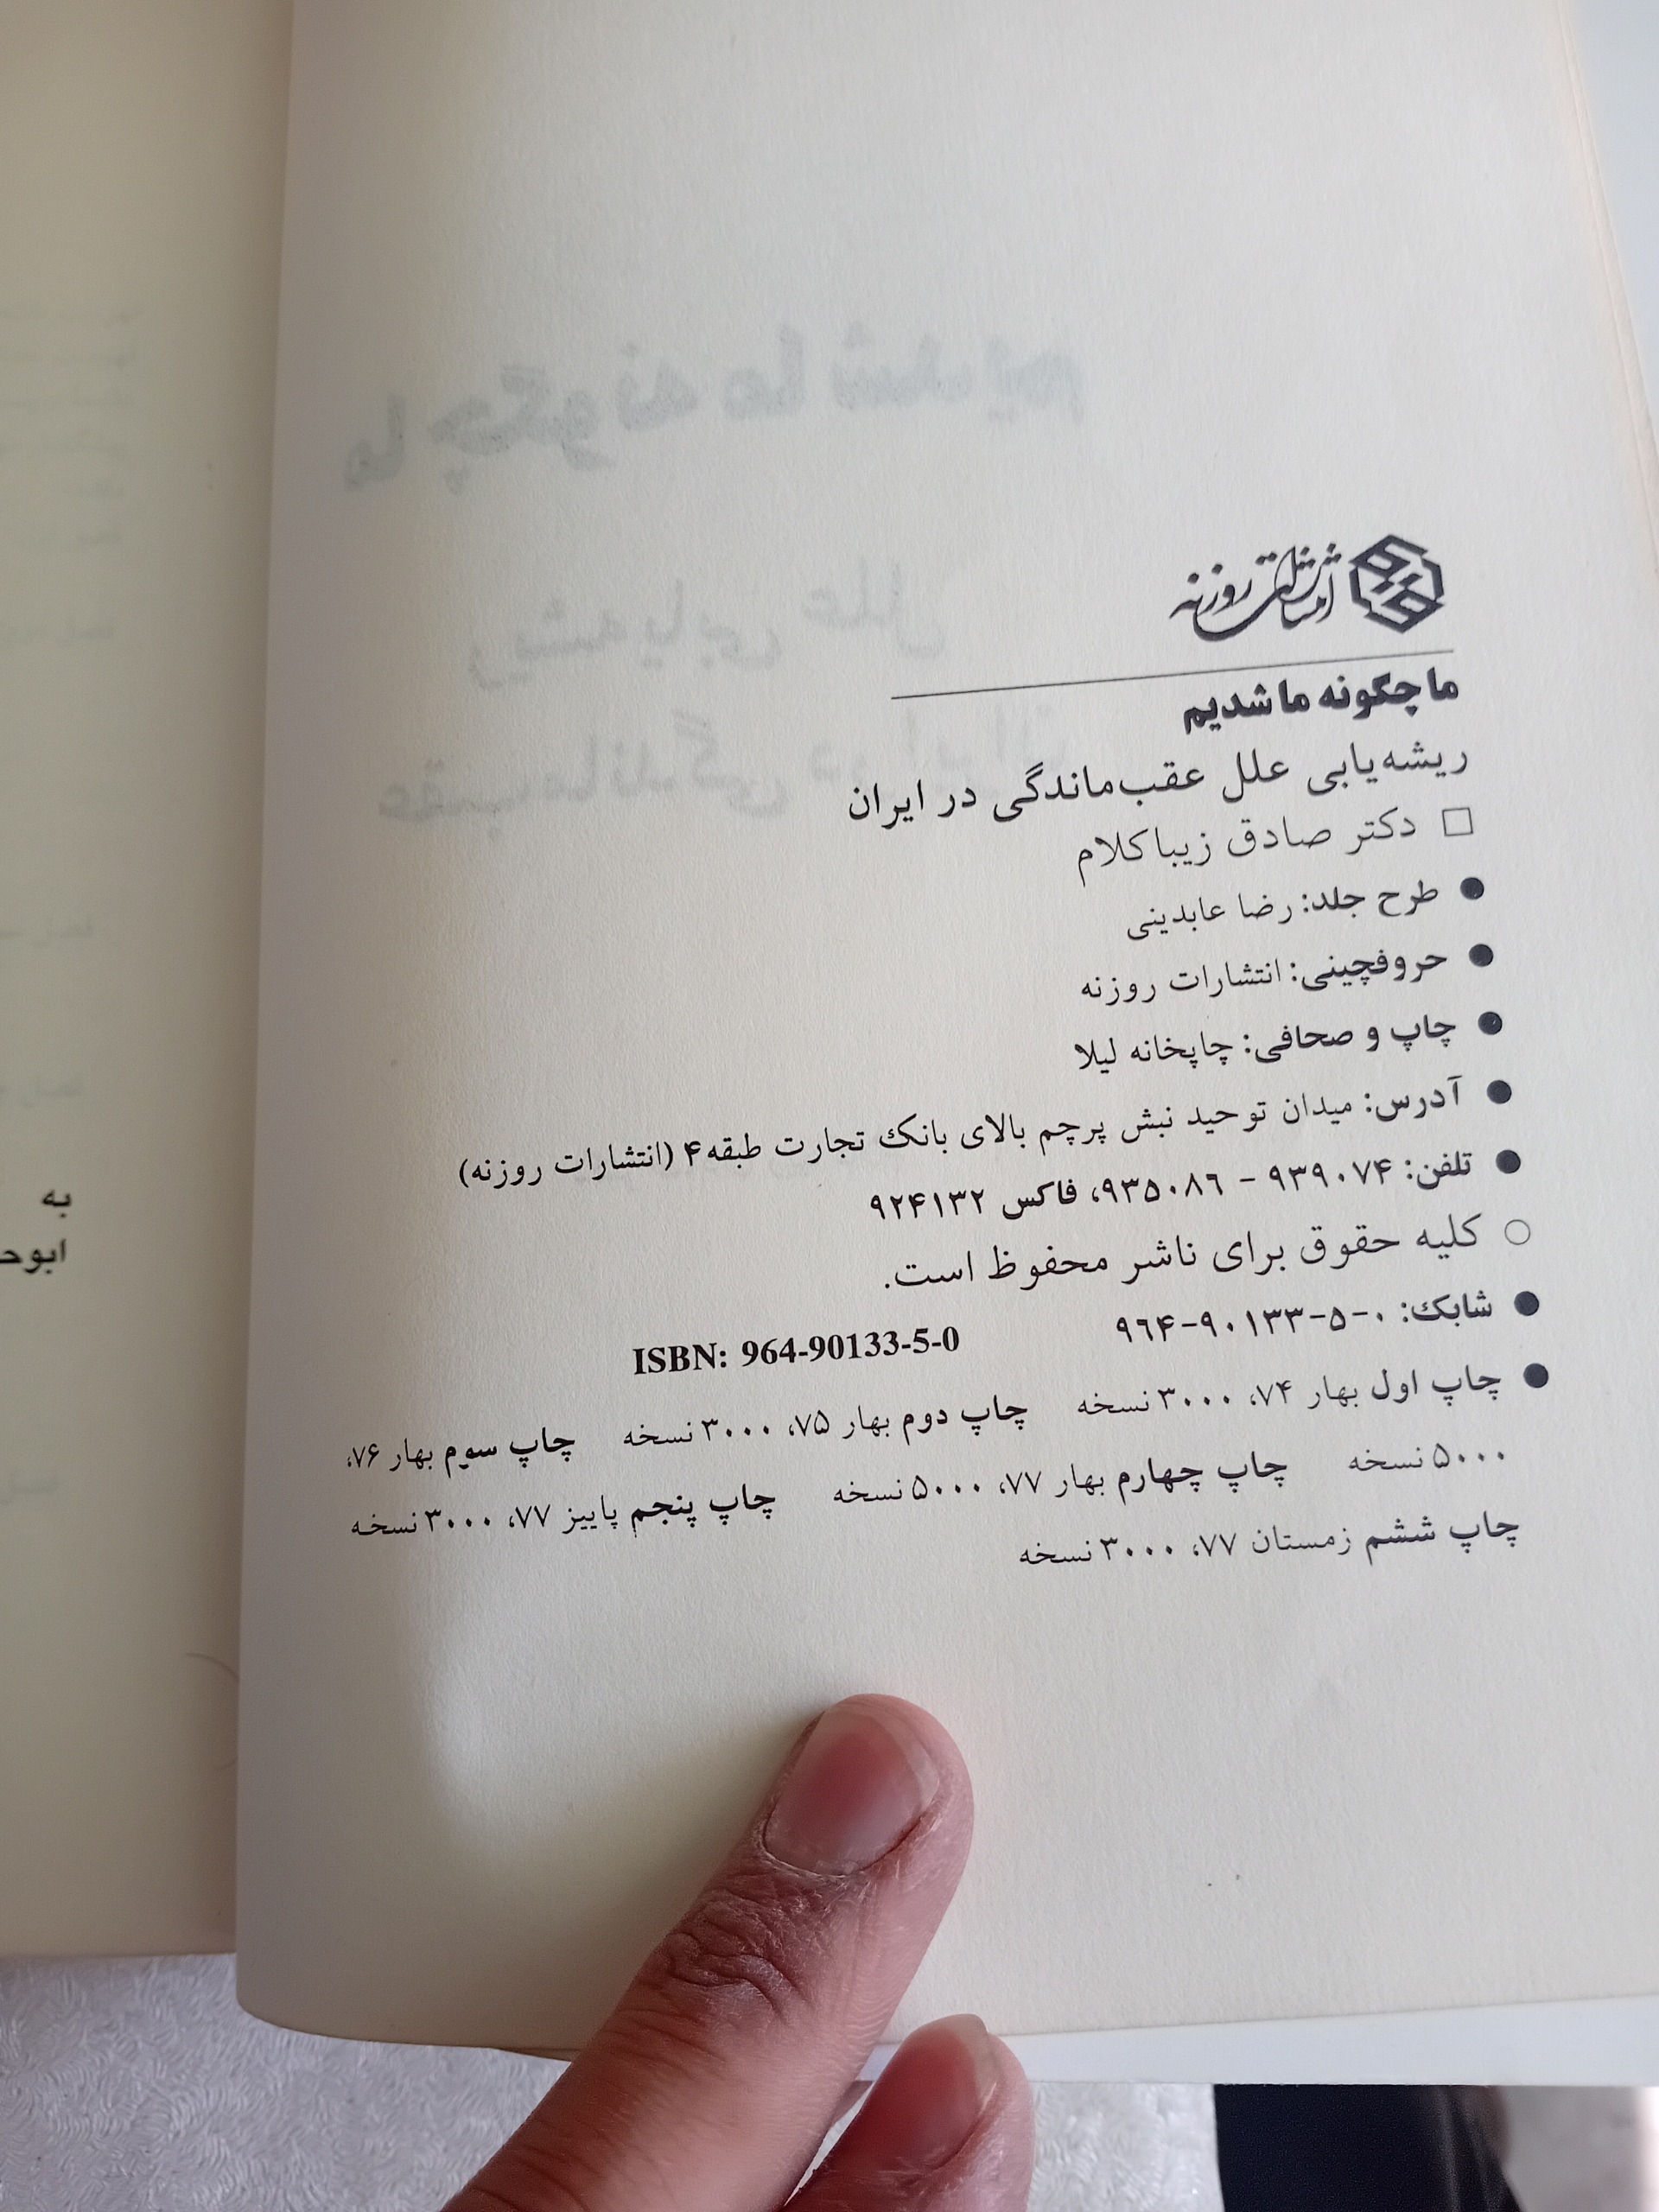 انتشارات روزنه
ما چگونه ما شدیم
ریشه‌یابی علل عقب‌ماندگی در ایران
□ دکتر صادق زیباکلام
● طرح جلد: رضا عابدینی
● حروفچینی: انتشارات روزنه
● چاپ و صحافی: چاپخانه لیلا
● آدرس: میدان توحید نبش پرچم بالای بانک تجارت طبقه ۴ (انتشارات روزنه)
● تلفن: ۹۳۹۰۷۴ - ۹۳۵۰۸۶، فاکس ۹۲۴۱۳۲
○ کلیه حقوق برای ناشر محفوظ است.
● شابک: ۰-۵-۹۰۱۳۳-۹۶۴ ISBN: 964-90133-5-0
● چاپ اول بهار ۷۴، ۳۰۰۰ نسخه چاپ دوم بهار ۷۵، ۳۰۰۰ نسخه چاپ سوم بهار ۷۶،
۵۰۰۰ نسخه چاپ چهارم بهار ۷۷، ۵۰۰۰ نسخه چاپ پنجم پاییز ۷۷، ۳۰۰۰ نسخه
چاپ ششم زمستان ۷۷، ۳۰۰۰ نسخه
به